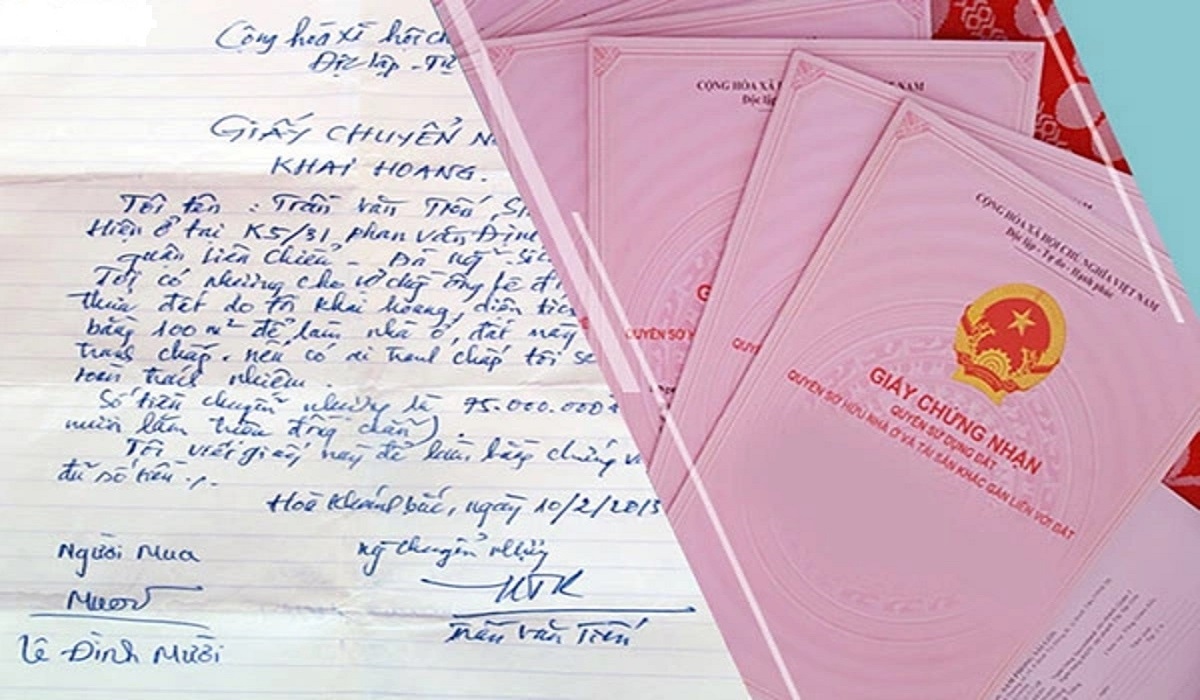 Cộng hòa xã hội ch
Độc lập - Tự
GIẤY CHUYỂN N
KHAI HOANG.
Tôi tên : Trần Văn Tiến, Si
Hiện ở tại K5/31 phan Văn Định
quận Liên Chiểu - Đà Nẵng
Tôi có nhường cho vợ chồng ông Lê Đì
thửa đất do tôi khai hoang, diện tíc
bằng 100 m² để làm nhà ở, đất này
tranh chấp. nếu có ai tranh chấp tôi sẽ
toàn trách nhiệm.
Số tiền chuyển nhường là 75.000.000đ
mươi lăm triệu đồng chẵn).
Tôi viết giấy này để làm bằng chứng v
đủ số tiền ./.
Hoà Khánh bắc, ngày 10/2/2013
Người Mua
Mười
Lê Đình Mười
ng chuyển nhượng
Trần Văn Tiến
CỘNG HÒA XÃ
VIỆT NAM
Độc lập
QUYỀN SỞ H
QUYỀN
CỘNG HÒA XÃ HỘI CHỦ NGHĨA VIỆT NAM
Độc lập - Tự do - Hạnh phúc
GIẤY CHỨNG NHẬN
QUYỀN SỬ DỤNG ĐẤT
QUYỀN SỞ HỮU NHÀ Ở VÀ TÀI SẢN KHÁC GẮN LIỀN VỚI ĐẤT